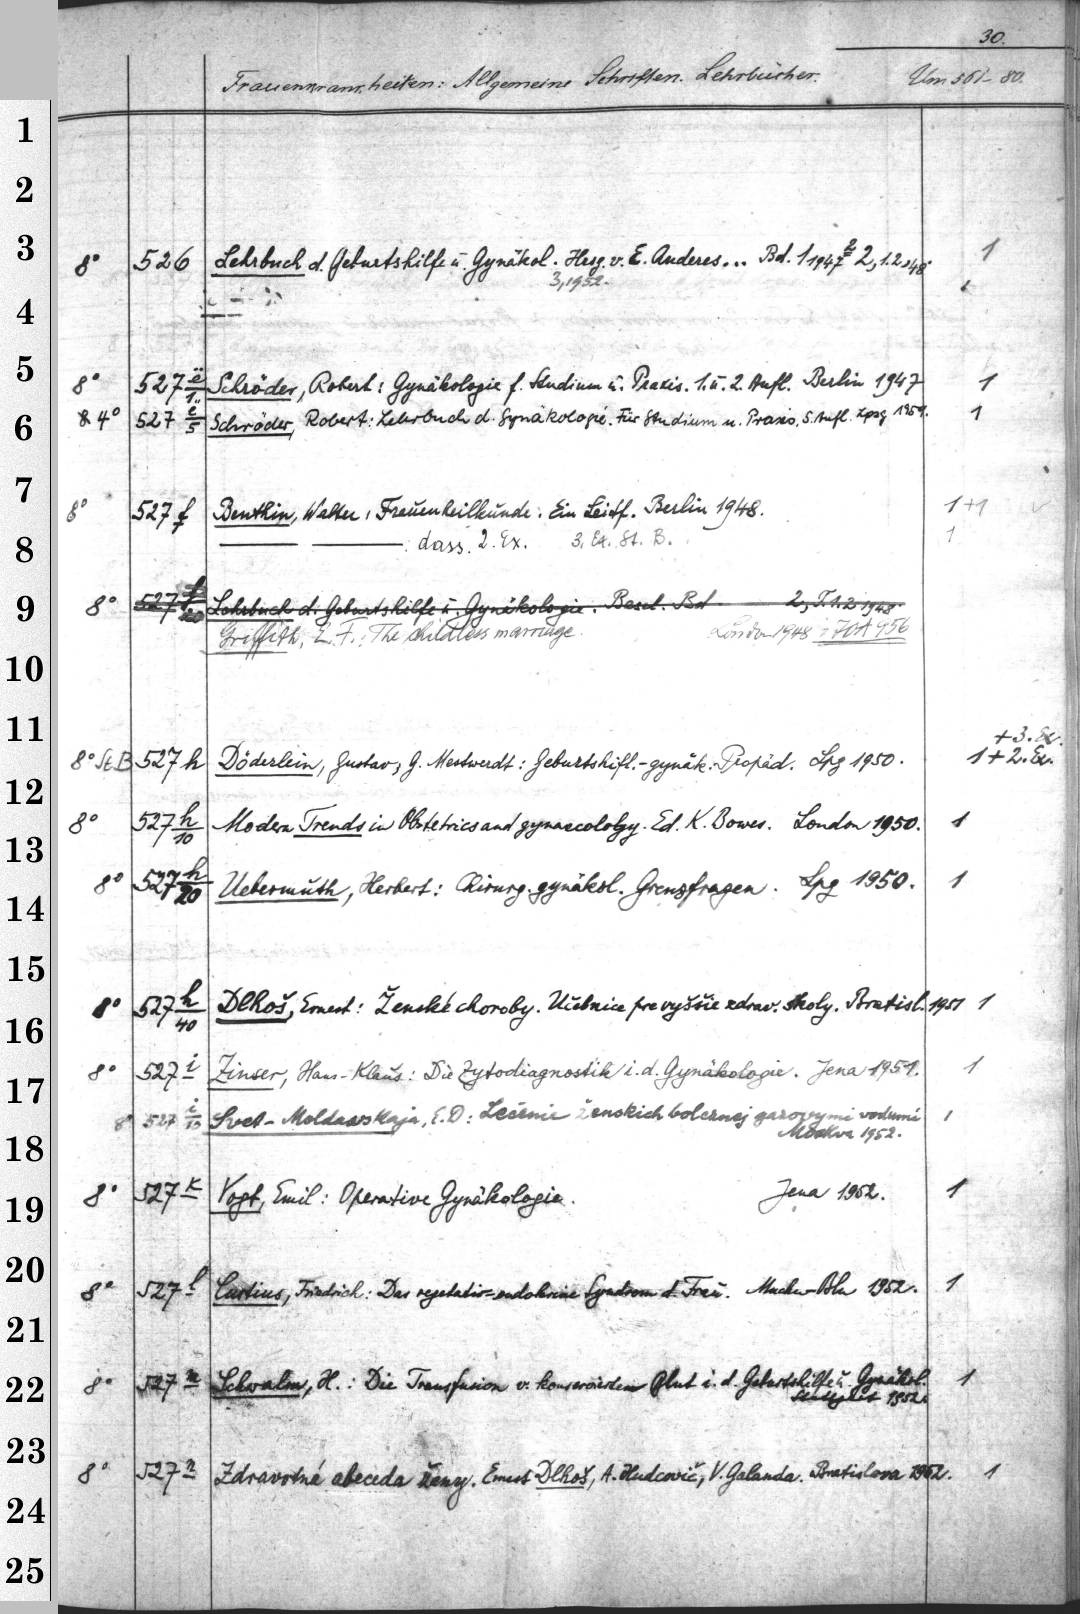 30.
Frauenkrankheiten: Allgemeine Schriften. Lehrbücher. Um 561-80.
1
2
3
8° 526 Lehrbuch d. Geburtshilfe u. Gynäkol. Hrsg. v. E. Anderes... Bd. 1 1947 2, 1.2 1948. 1
3, 1952.
4
5
8° 527 e/1 Schröder, Robert: Gynäkologie f. Studium u. Praxis. 1. u. 2. Aufl. Berlin 1947 1
6
4° 527 e/5 Schröder, Robert: Lehrbuch d. Gynäkologie. Für Studium u. Praxis, 5. Aufl. Lpzg 1959. 1
7
8° 527 f Benthin, Walter: Frauenheilkunde. Ein Leitf. Berlin 1948. 1+1
8
dass. 2. Ex. 3. Ex. St. B. 1
9
8° 527 f/20 Lehrbuch d. Geburtshilfe u. Gynäkologie. Basel. Bd 2, T. 1.2 1948
Griffith, E. F.: The childless marriage. London 1948 : 70A 956
10
11
+3. Ex.
8° St.B 527 h Döderlein, Gustav, G. Mestwerdt: Geburtshilfl.-gynäk. Propäd. Lpg 1950. 1+2. Ex.
12
8° 527 h/10 Modern Trends in Obstetrics and gynaecology. Ed. K. Bowes. London 1950. 1
13
8° 527 h/20 Uebermuth, Herbert: Chirurg. gynäkol. Grenzfragen. Lpg 1950. 1
14
15
8° 527 h/40 Dlhoš, Ernest: Ženské choroby. Učebnice pre vyššie zdrav. školy. Bratisl. 1951 1
16
8° 527 i Zinser, Hans-Klaus: Die Zytodiagnostik i. d. Gynäkologie. Jena 1951. 1
17
8 527 i/10 Svet-Moldavskaja, E.D: Lečenie ženskich boleznej gazovymi vodami 1
Moskva 1952.
18
8° 527 k Vogt, Emil: Operative Gynäkologie. Jena 1952. 1
19
20
8° 527 l Curtius, Friedrich: Das vegetativ-endokrine Syndrom d. Frau. Mchn-Bln 1952. 1
21
8° 527 m Schwalm, H.: Die Transfusion v. konservierten Blut i. d. Geburtshilfe u. Gynäkol. 1
22
Stuttgart 1952.
23
8° 527 n Zdravotná abeceda ženy. Ernest Dlhoš, A. Hudcovič, V. Galanda. Bratislava 1952. 1
24
25